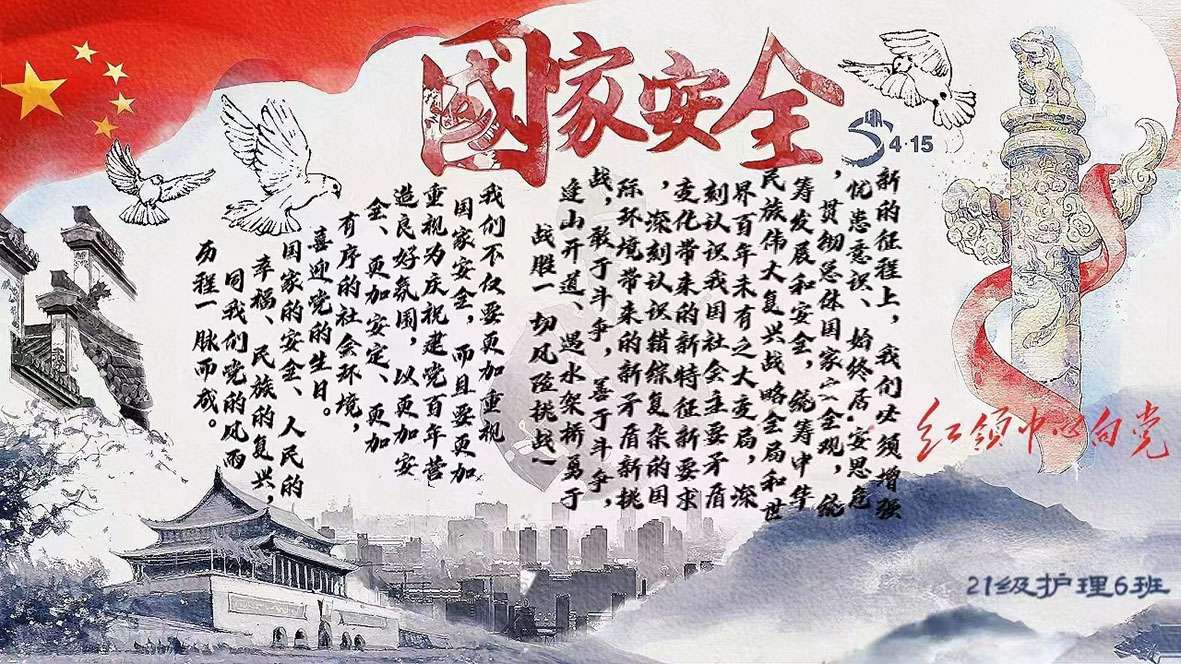 國家安全
4·15
新的征程上，我们必须增强
忧患意识、始终居安思危
，贯彻总体国家安全观，统
筹发展和安全，统筹中华
民族伟大复兴战略全局和世
界百年未有之大变局，深
刻认识我国社会主要矛盾
变化带来的新特征新要求
，深刻认识错综复杂的国
际环境带来的新矛盾新挑
战，敢于斗争，善于斗争，
逢山开道、遇水架桥勇于
战胜一切风险挑战！
我们不仅要更加重视
国家安全，而且要更加
重视为庆祝建党百年营
造良好氛围，以更加安
全、更加安定、更加
有序的社会环境，
喜迎党的生日。
国家的安全、人民的
幸福、民族的复兴，
同我们党的风而
历程一脉而成。
红领巾心向党
21级护理6班